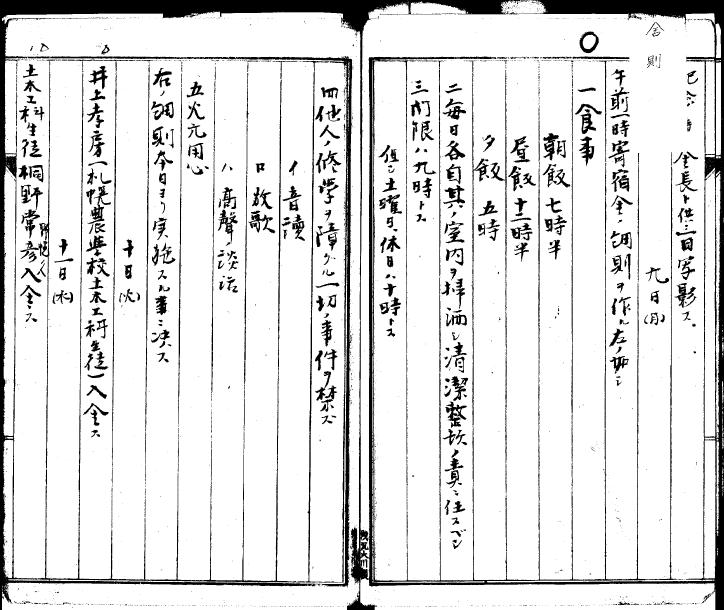 舎則
記念ノ為 舎長ト供ニ写影ス、
九日(月)
午前一時寄宿舎ノ細則ヲ作ル左ノ如シ
一食事
朝飯 七時半
昼飯 十二時半
夕飯 五時
二每日各自其ノ室内ヲ掃洒シ清潔整頓ノ責ニ任スベシ
三門限ハ九時トス
但シ土曜日、休日ハ十時トス
四他人ノ修学ヲ障グル一切ノ事件ヲ禁ズ
イ音讀
ロ放歌
ハ高聲ノ談話
五火元用心
右ノ細則本日ヨリ実施スル事ニ決ス
十日(火)
井上孝房(札幌農學校土木工科生徒)入舎ス
十一日(水)
土木工科生徒桐野常彦入舎ス